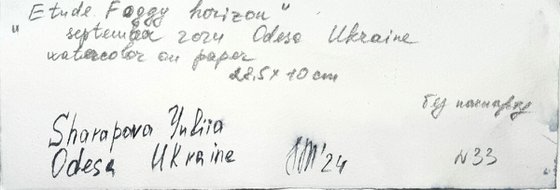 "Etude Foggy horizon"
september 2024 Odesa Ukraine
watercolor on paper
28,5 x 10 cm
Sharapova Yuliia
Odesa Ukraine
'24
N33